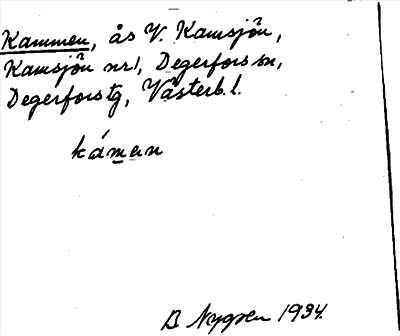 Kammen, ås V. Kamsjön,
Kamsjön nr1, Degerfors sn,
Degerfors tg, Västerb. l.
kámen
B Nygren 1934.